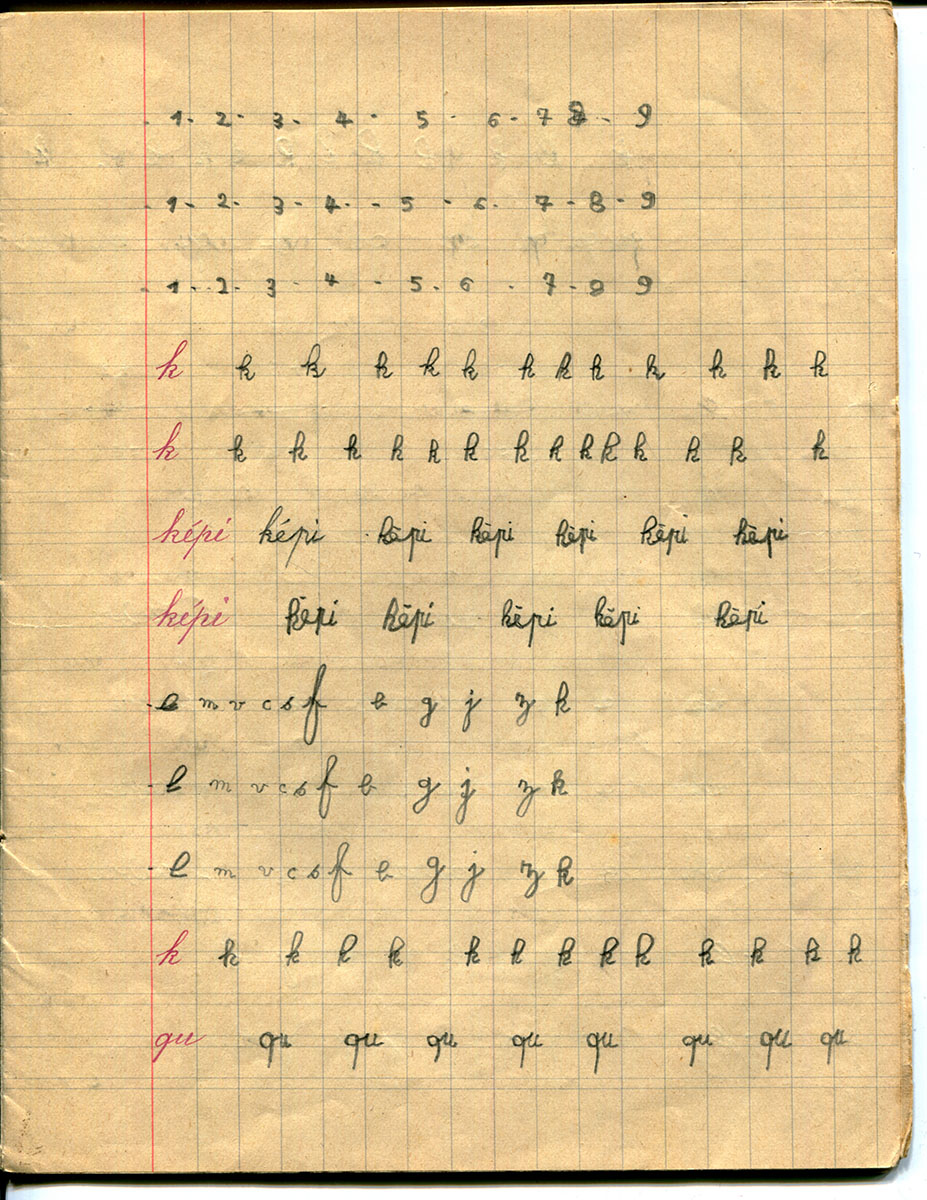 - 1 - 2 - 3 - 4 - 5 - 6 - 7 8 - 9
- 1 - 2 - 3 - 4 - - 5 - 6 - 7 - 8 - 9
- 1 - - 2 - 3 - 4 - 5 - 6 - 7 - 8 9
k k k k k k k k k k k k k
k k k k k k k k k k k k k k k
képi képi képi képi képi képi képi
képi képi képi képi képi képi
- l m v c s f b g j z k
- l m v c s f b g j z k
- l m v c s f b g j z k
k k k k k k k k k k k k k k
qu qu qu qu qu qu qu qu qu